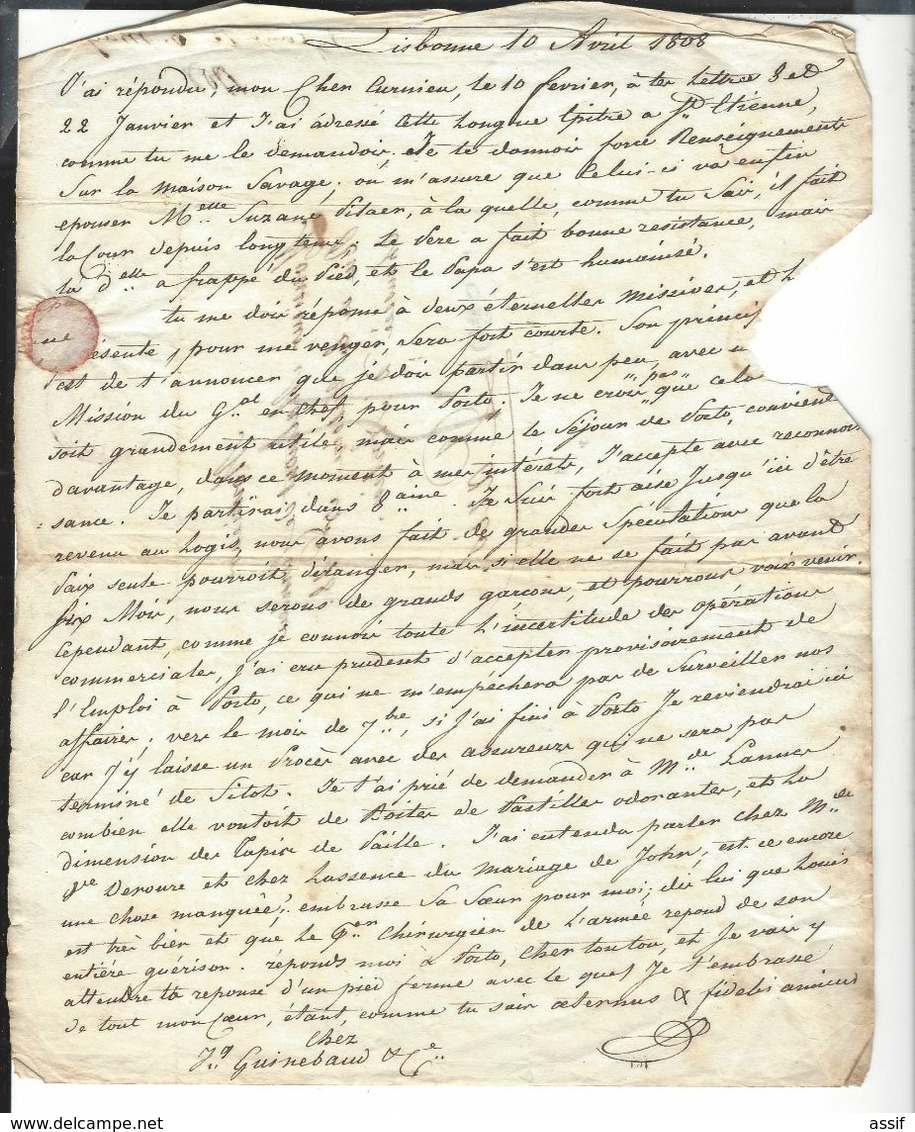 Lisbonne 10 Avril 1808
J'ai répondu, mon Cher Curnieu, le 10 fevrier, à tes Lettres 3 et
22 Janvier et J'ai adressé cette Longue Epitre a St. Etienne,
comme tu me le demandois. Je te donnois force Renseignements
Sur la maison Savage; on m'assure que Celui-ci va enfin
epouser Melle. Suzane Pitaer, à la quelle, comme tu Sais, il fait
la Cour depuis longtems. Le Pere a fait bonne resistance, mais
la delle. a frappé du Pied, et le Papa s'est humanisé.
tu me dois réponse à deux éternelles missives, et
présente, pour me venger, Sera fort courte. Son princip
est de t'annoncer que je dois partir dans peu, avec
Mission du Gal. en chef pour Porto. Je ne crois pas que cela
soit grandement utile, mais comme le Séjour de Porto, convient
davantage, dans ce moment à mes intérets, J'accepte avec reconnois
=sance. Je partirai dans 8aine. Je Suis fort aise Jusqu'ici d'être
revenu au Logis, nous avons fait de grandes Spéculations que la
Paix seule pourroit déranger, mais si elle ne se fait pas avant
Six Mois, nous serons de grands garçons, et pourrons voir venir.
Cependant, comme je connois toute L'incertitude des opérations
commerciales, J'ai cru prudent d'accepter provisoirement de
l'Emploi à Porto, ce qui ne m'empechera pas de Surveiller nos
affaires; vers le mois de 7bre, si J'ai fini à Porto Je reviendrai ici
car J'y laisse un Procès avec des assureurs qui ne sera pas
terminé de Sitot. Je t'ai prié de demander à Mde. Lannes
combien elle vouloit de Boites de Pastilles odorantes, et la
dimension des Tapis de Paille. J'ai entendu parler chez Mde
Vve Deroure et chez Lassence du mariage de John, est-ce encore
une chose manquée? embrasse Sa Sœur pour moi; dis lui que Louis
est très bien et que le Per Chirurgien de L'armée repond de son
entiére guérison. réponds moi à Porto, Cher toutou, et Je vais y
attendre ta reponse d'un pied ferme avec le quel Je t'embrasse
de tout mon Cœur, etant, comme tu sais æternus & fidelis amicus
chez
Jq. Guinebaud & Ce.
assif